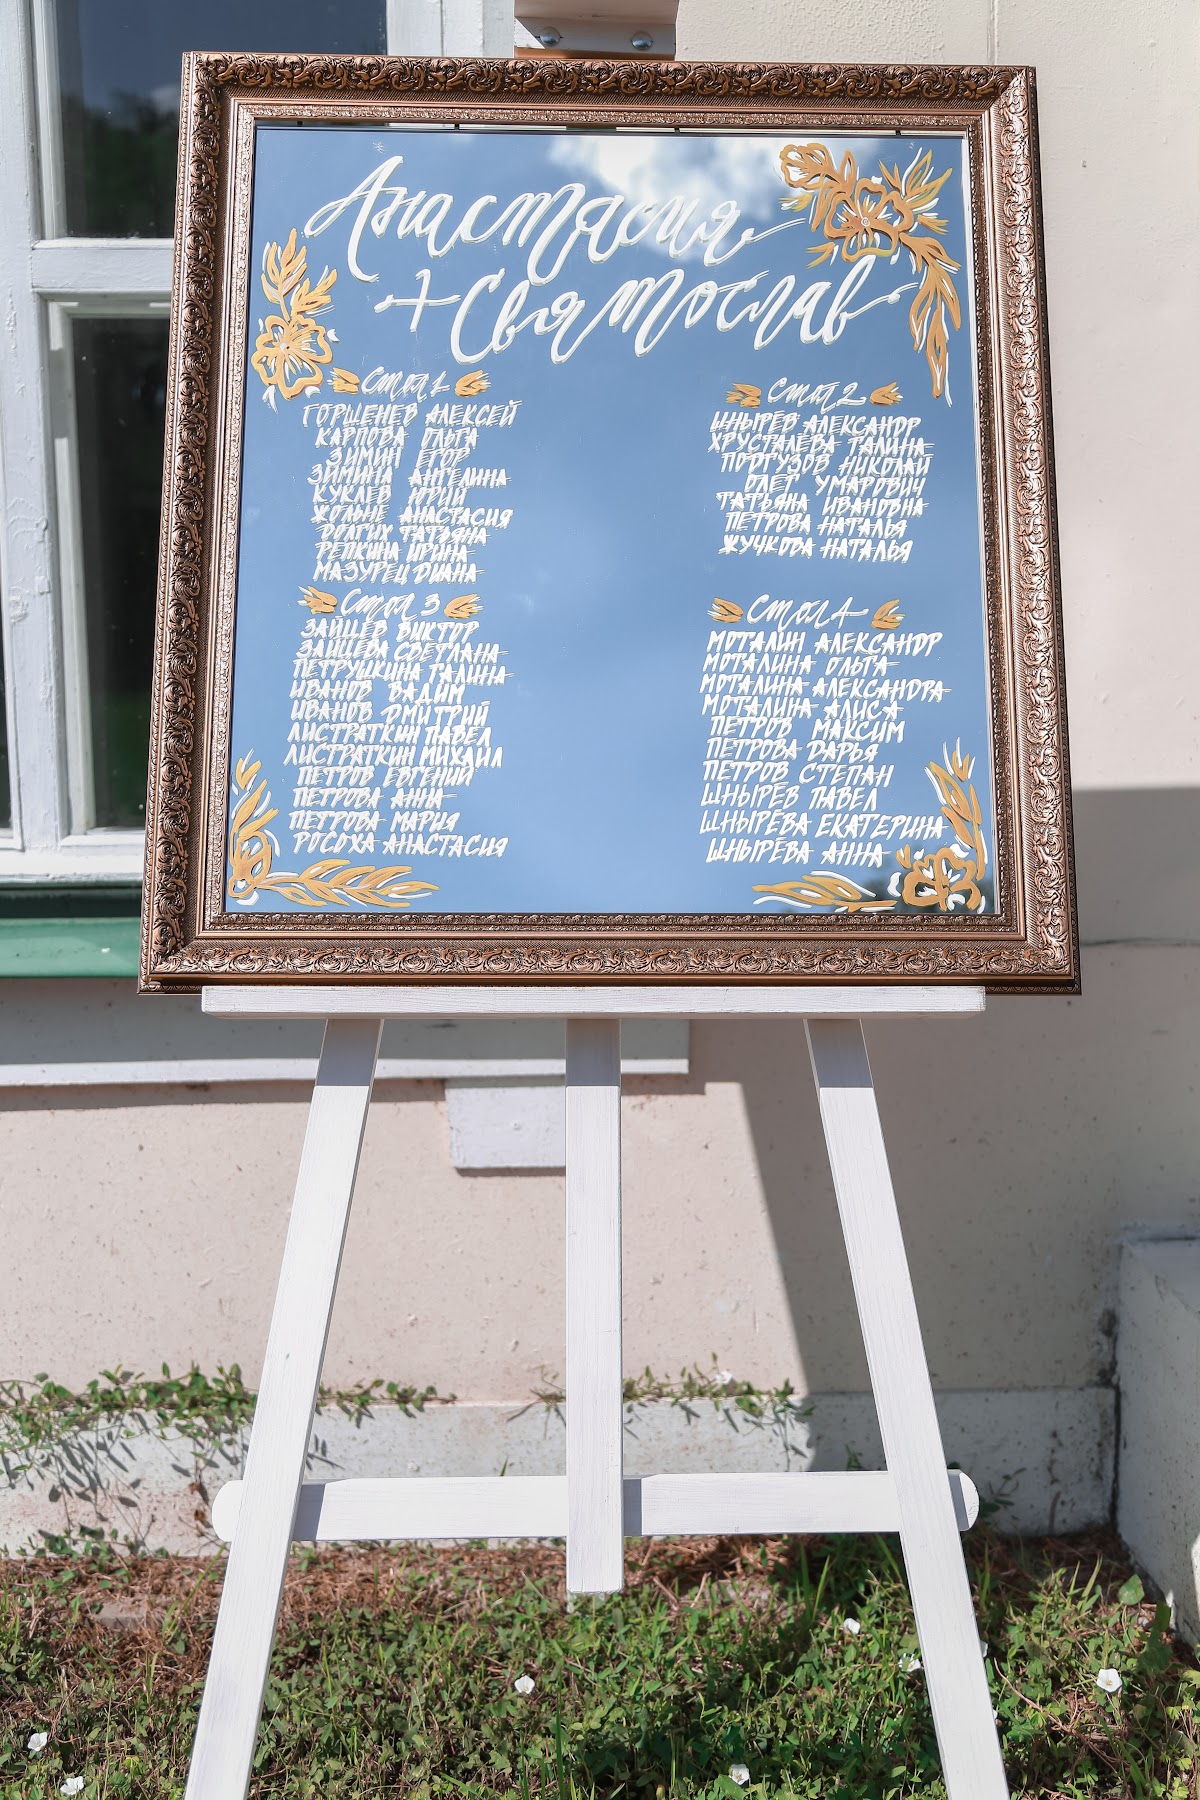 Анастасия
+ Святослав
Стол 1
ГОРШЕНЕВ АЛЕКСЕЙ
КАРПОВА ОЛЬГА
ЗИМИН ЕГОР
ЗИМИНА АНГЕЛИНА
КУКЛЕВ ЮРИЙ
ЖОЛЬНЕ АНАСТАСИЯ
ДОЛГИХ ТАТЬЯНА
РЕПКИНА ИРИНА
МАЗУРЕЦ ДИАНА
Стол 2
ШНЫРЁВ АЛЕКСАНДР
ХРУСТАЛЁВА ГАЛИНА
ПОДГУЗОВ НИКОЛАЙ
ОЛЕГ УМАРОВИЧ
ТАТЬЯНА ИВАНОВНА
ПЕТРОВА НАТАЛЬЯ
ЖУЧКОВА НАТАЛЬЯ
Стол 3
ЗАЙЦЕВ ВИКТОР
ЗАЙЦЕВА СВЕТЛАНА
ПЕТРУШКИНА ГАЛИНА
ИВАНОВ ВАДИМ
ИВАНОВ ДМИТРИЙ
ЛИСТРАТКИН ПАВЕЛ
ЛИСТРАТКИН МИХАИЛ
ПЕТРОВ ЕВГЕНИЙ
ПЕТРОВА АННА
ПЕТРОВА МАРИЯ
РОСОХА АНАСТАСИЯ
Стол 4
МОТАЛИН АЛЕКСАНДР
МОТАЛИНА ОЛЬГА
МОТАЛИНА АЛЕКСАНДРА
МОТАЛИНА АЛИСА
ПЕТРОВ МАКСИМ
ПЕТРОВА ДАРЬЯ
ПЕТРОВ СТЕПАН
ШНЫРЁВ ПАВЕЛ
ШНЫРЁВА ЕКАТЕРИНА
ШНЫРЁВА АННА